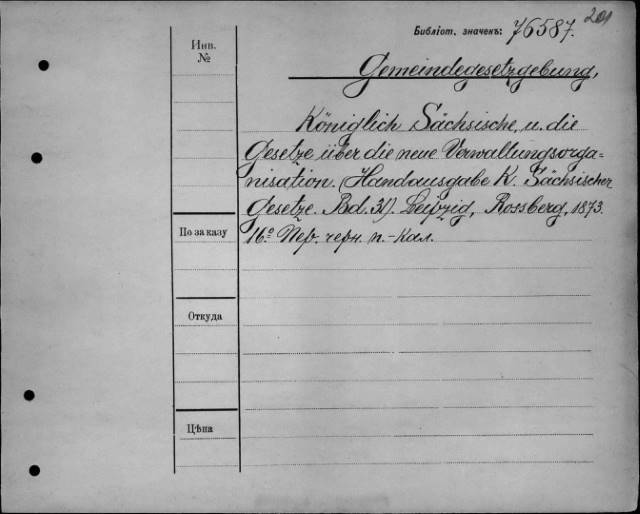 201
Библіот. значекъ: 76587.
Инв.
№
Gemeindegesetzgebung,
Königlich Sächsische, u. die
Gesetze über die neue Verwaltungsorga=
nisation. (Handausgabe K. Sächsischer
Gesetze. Bd. 31). Leipzig, Rossberg, 1873.
По заказу
16° Пер. черн. п.-кал.
Откуда
Цѣна